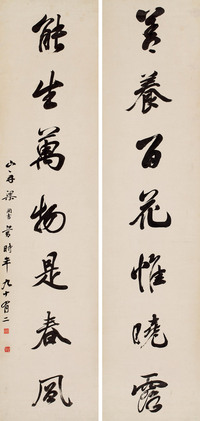 養養百花惟曉露
能生萬物是春風
山舟梁同書 時年九十有二